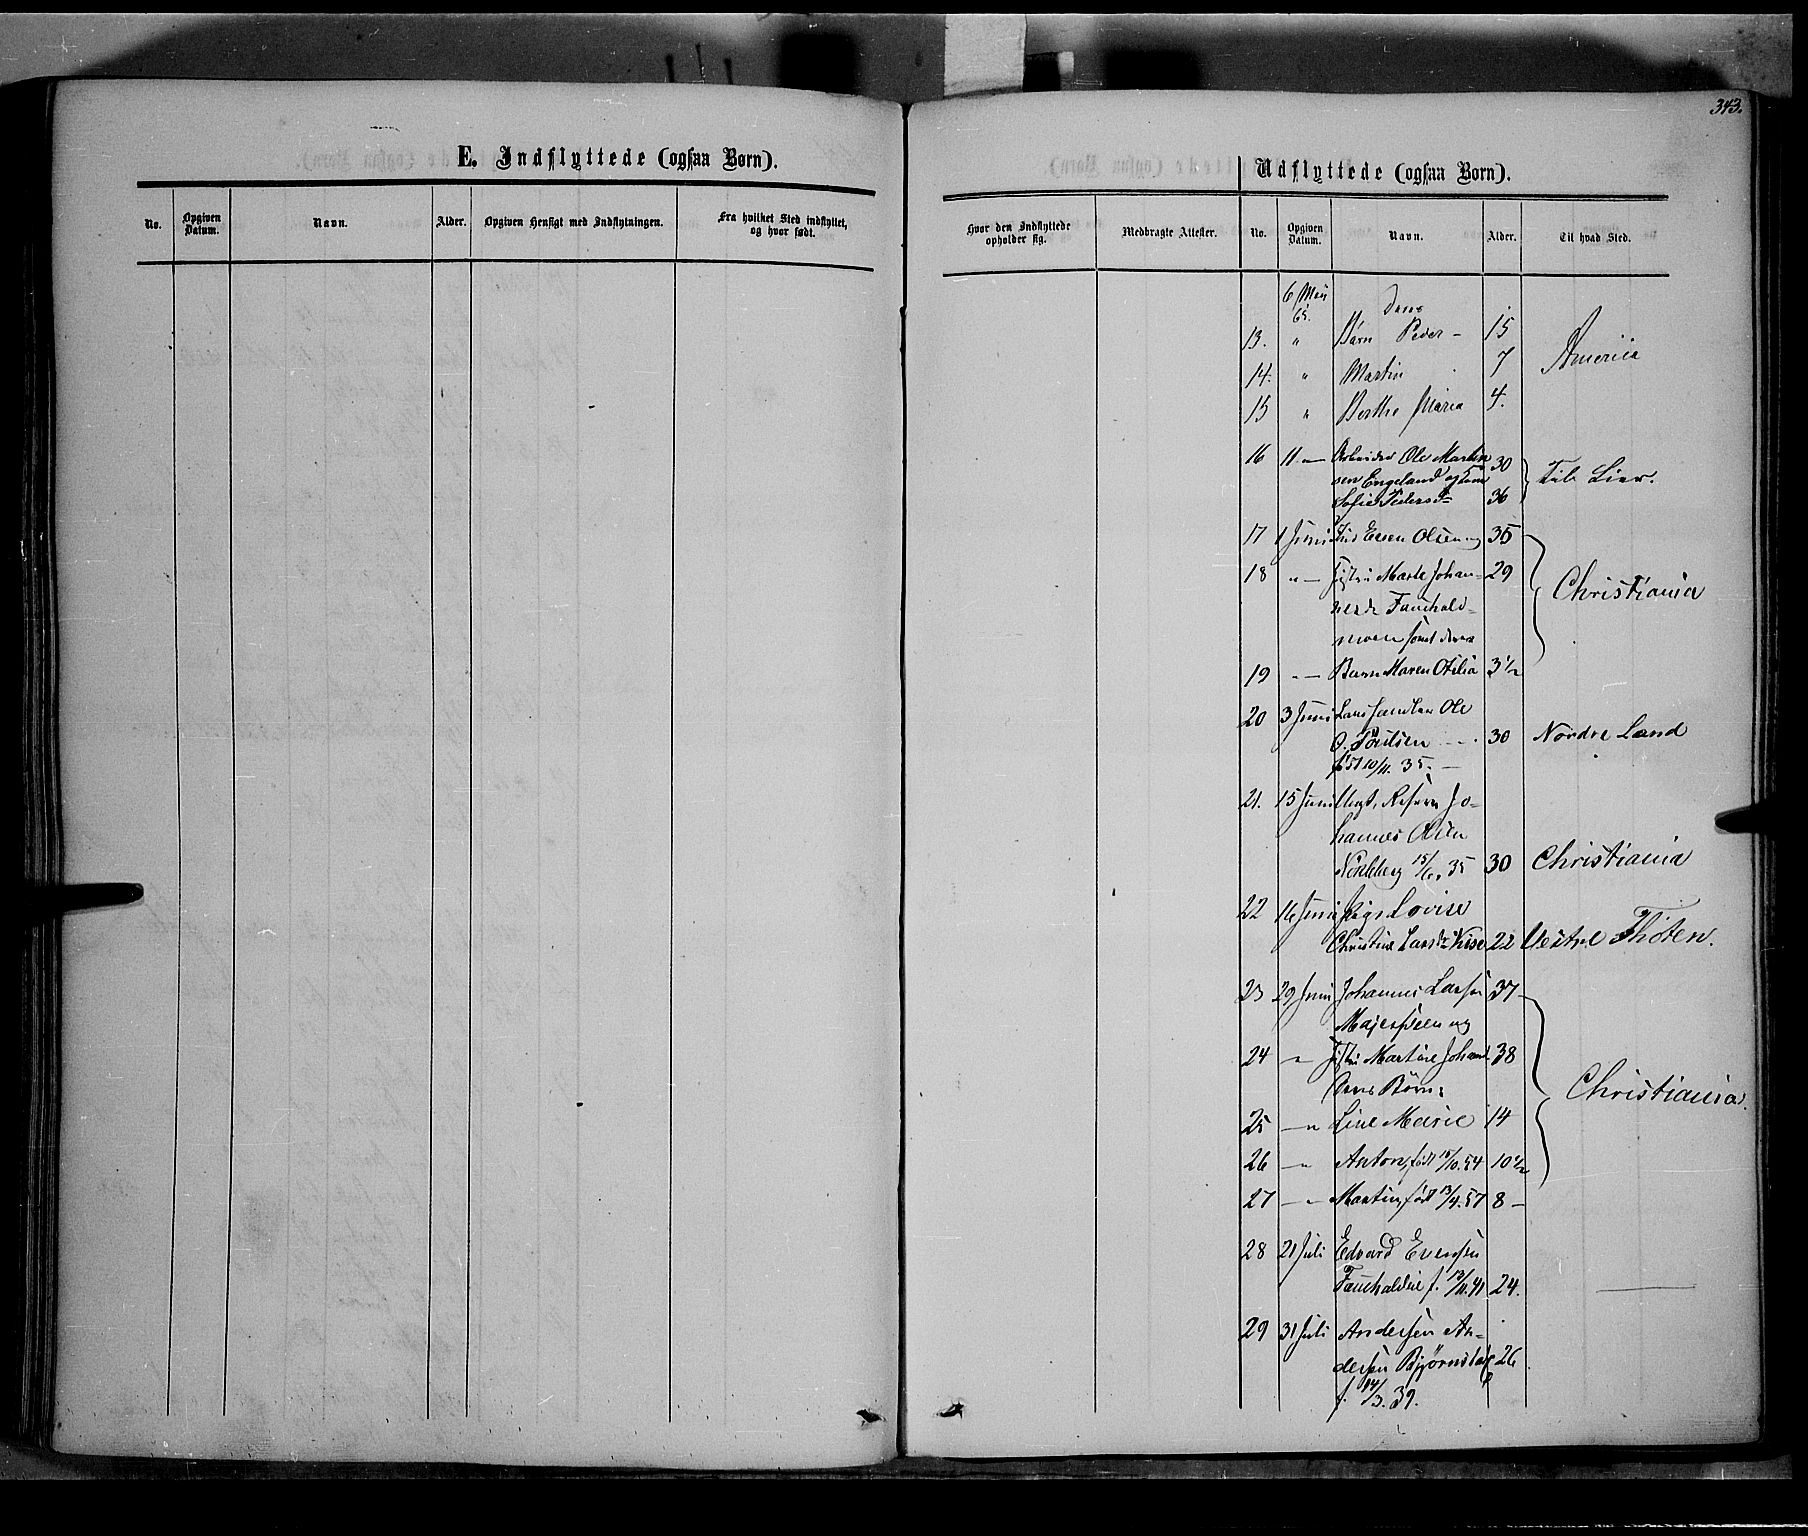 343.
E. Indflyttede (ogsaa Børn).
No.
Opgiven Datum.
Navn.
Alder.
Opgiven Hensigt med Indflytningen.
Fra hvilket Sted indflyttet, og hvor født.
Udflyttede (ogsaa Børn).
Hvor den Indflyttede opholder sig.
Medbragte Attester.
No.
Opgiven Datum.
Navn.
Alder.
Til hvad Sted.
6 Mai 65. Deres
13. " Børn Peder - 15
14. " Martin 7 America
15 " Berthe Maria 4.
16 11 — Arbeider Ole Martin 30
sen Engeland og Kone Til Lier.
Sofie Pedersd 36
17 1 Juni Even Olsen og 35
18 " — Marte Johan- 29 Christiania
nesd Fauchald-
moen samt deres
19 " — Barn Maren Otilia 3½
20 3 Juni Ole
O. 30 Nordre Land
10/11. 35. —
21. 15 Juni Ungk. Jo-
hannes Olsen
15/6. 35 30 Christiania
22 16 Juni Pige Lovise
Christine Larsd Kise 22 Vestre Thoten.
23 29 Juni Johannes Larsen 37
og
24 " Martine Johand 38
Deres Børn: Christiania.
25 — " Line Marie 14
26 " Anton, født 10.54 10½
27 " Martin, født 13/4.57 8 —
28 21 Juli Edvard Evensen
f. 13/11.41 24. —
29 31 Juli Andersen An-
dersen Bjørnstad 26
f. 14/3. 39.